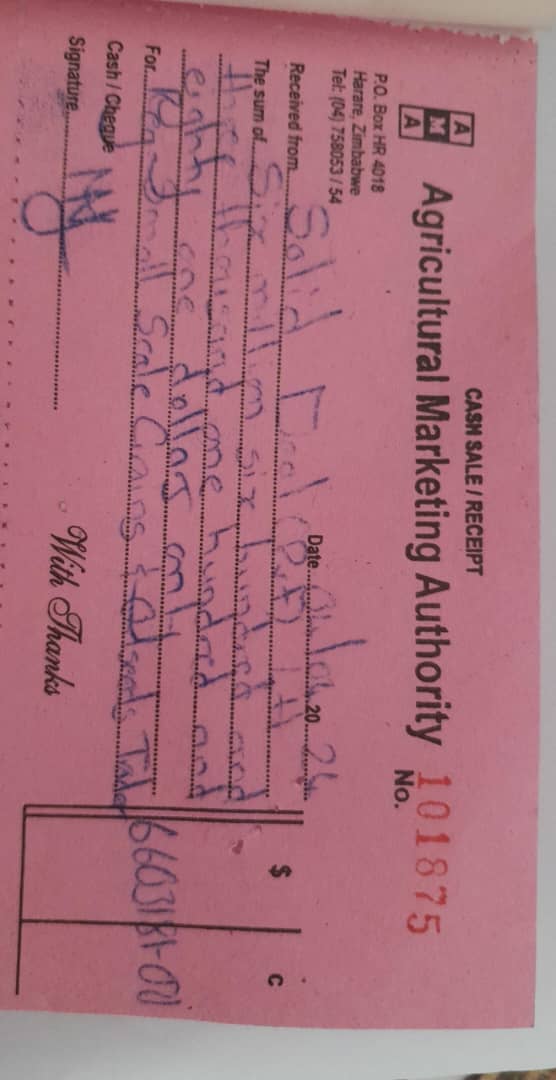 CASH SALE / RECEIPT
A
M
A
Agricultural Marketing Authority
No. 101875
P.O. Box HR 4018
Harare, Zimbabwe
Tel: (04) 758053 / 54
Date 20 24
Received from Solid (Pvt) Ltd
The sum of Six million six hundred and
three thousand one hundred and
eighty one dollars only
For Reg Small Scale Grains &
$ C
6603181-00
Cash / Cheque
Signature
With Thanks